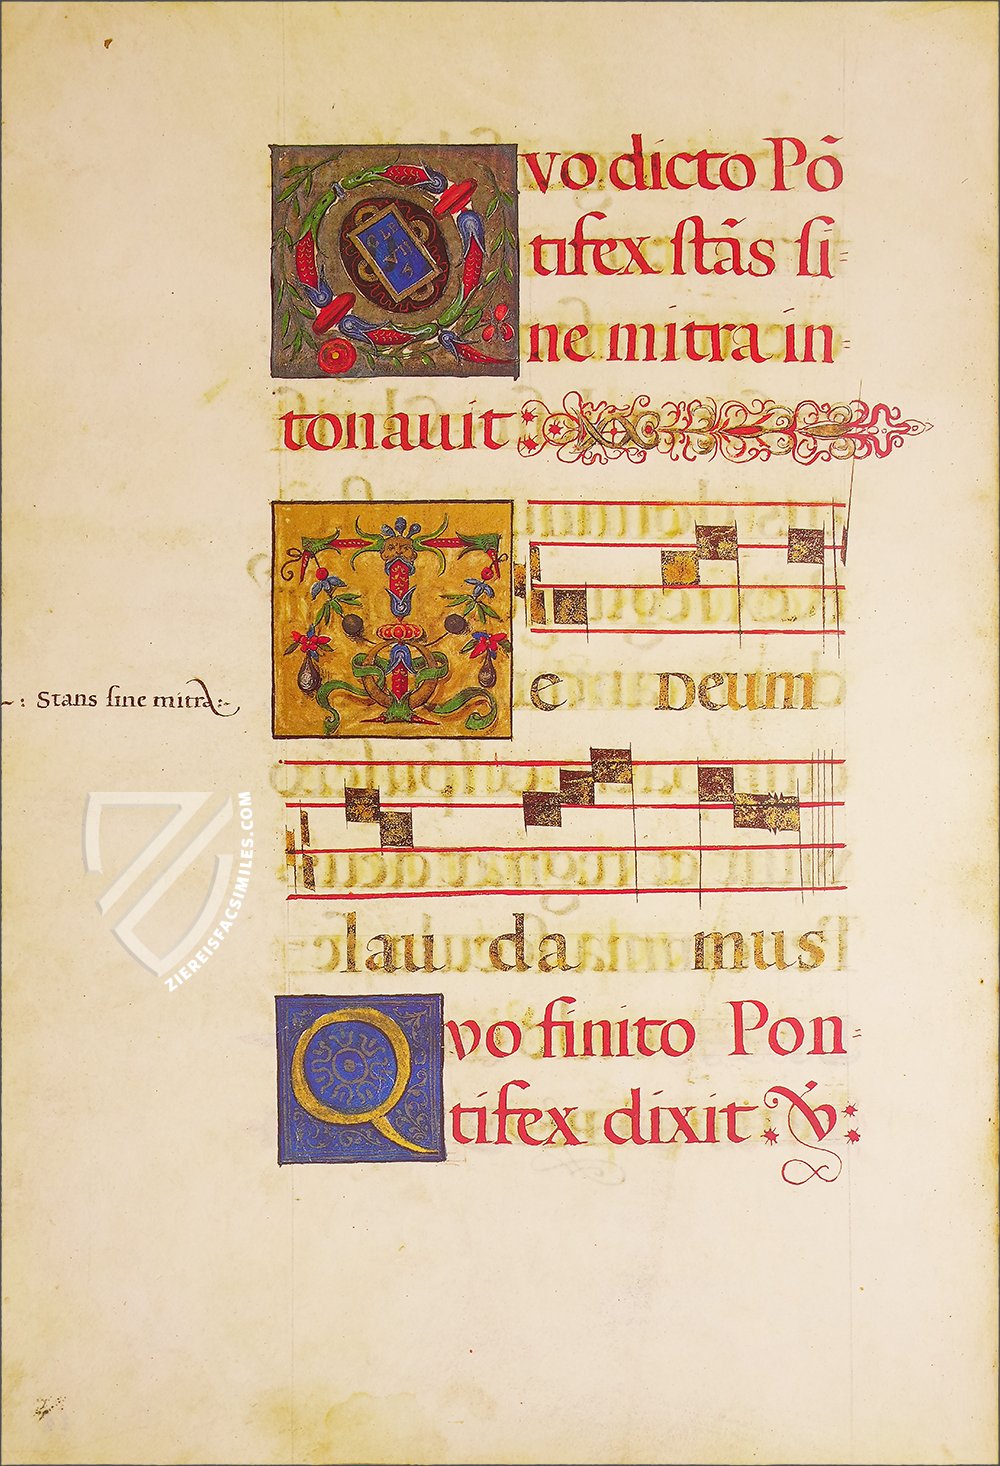 Qvo dicto Põ
tifex stãs si=
ne mitra in=
tonauit
CLE
VII
Te Deum
-: Stans sine mitra:-
lau da mus
Qvo finito Pon=
tifex dixit: ℣:
ZIEREISFACSIMILES.COM